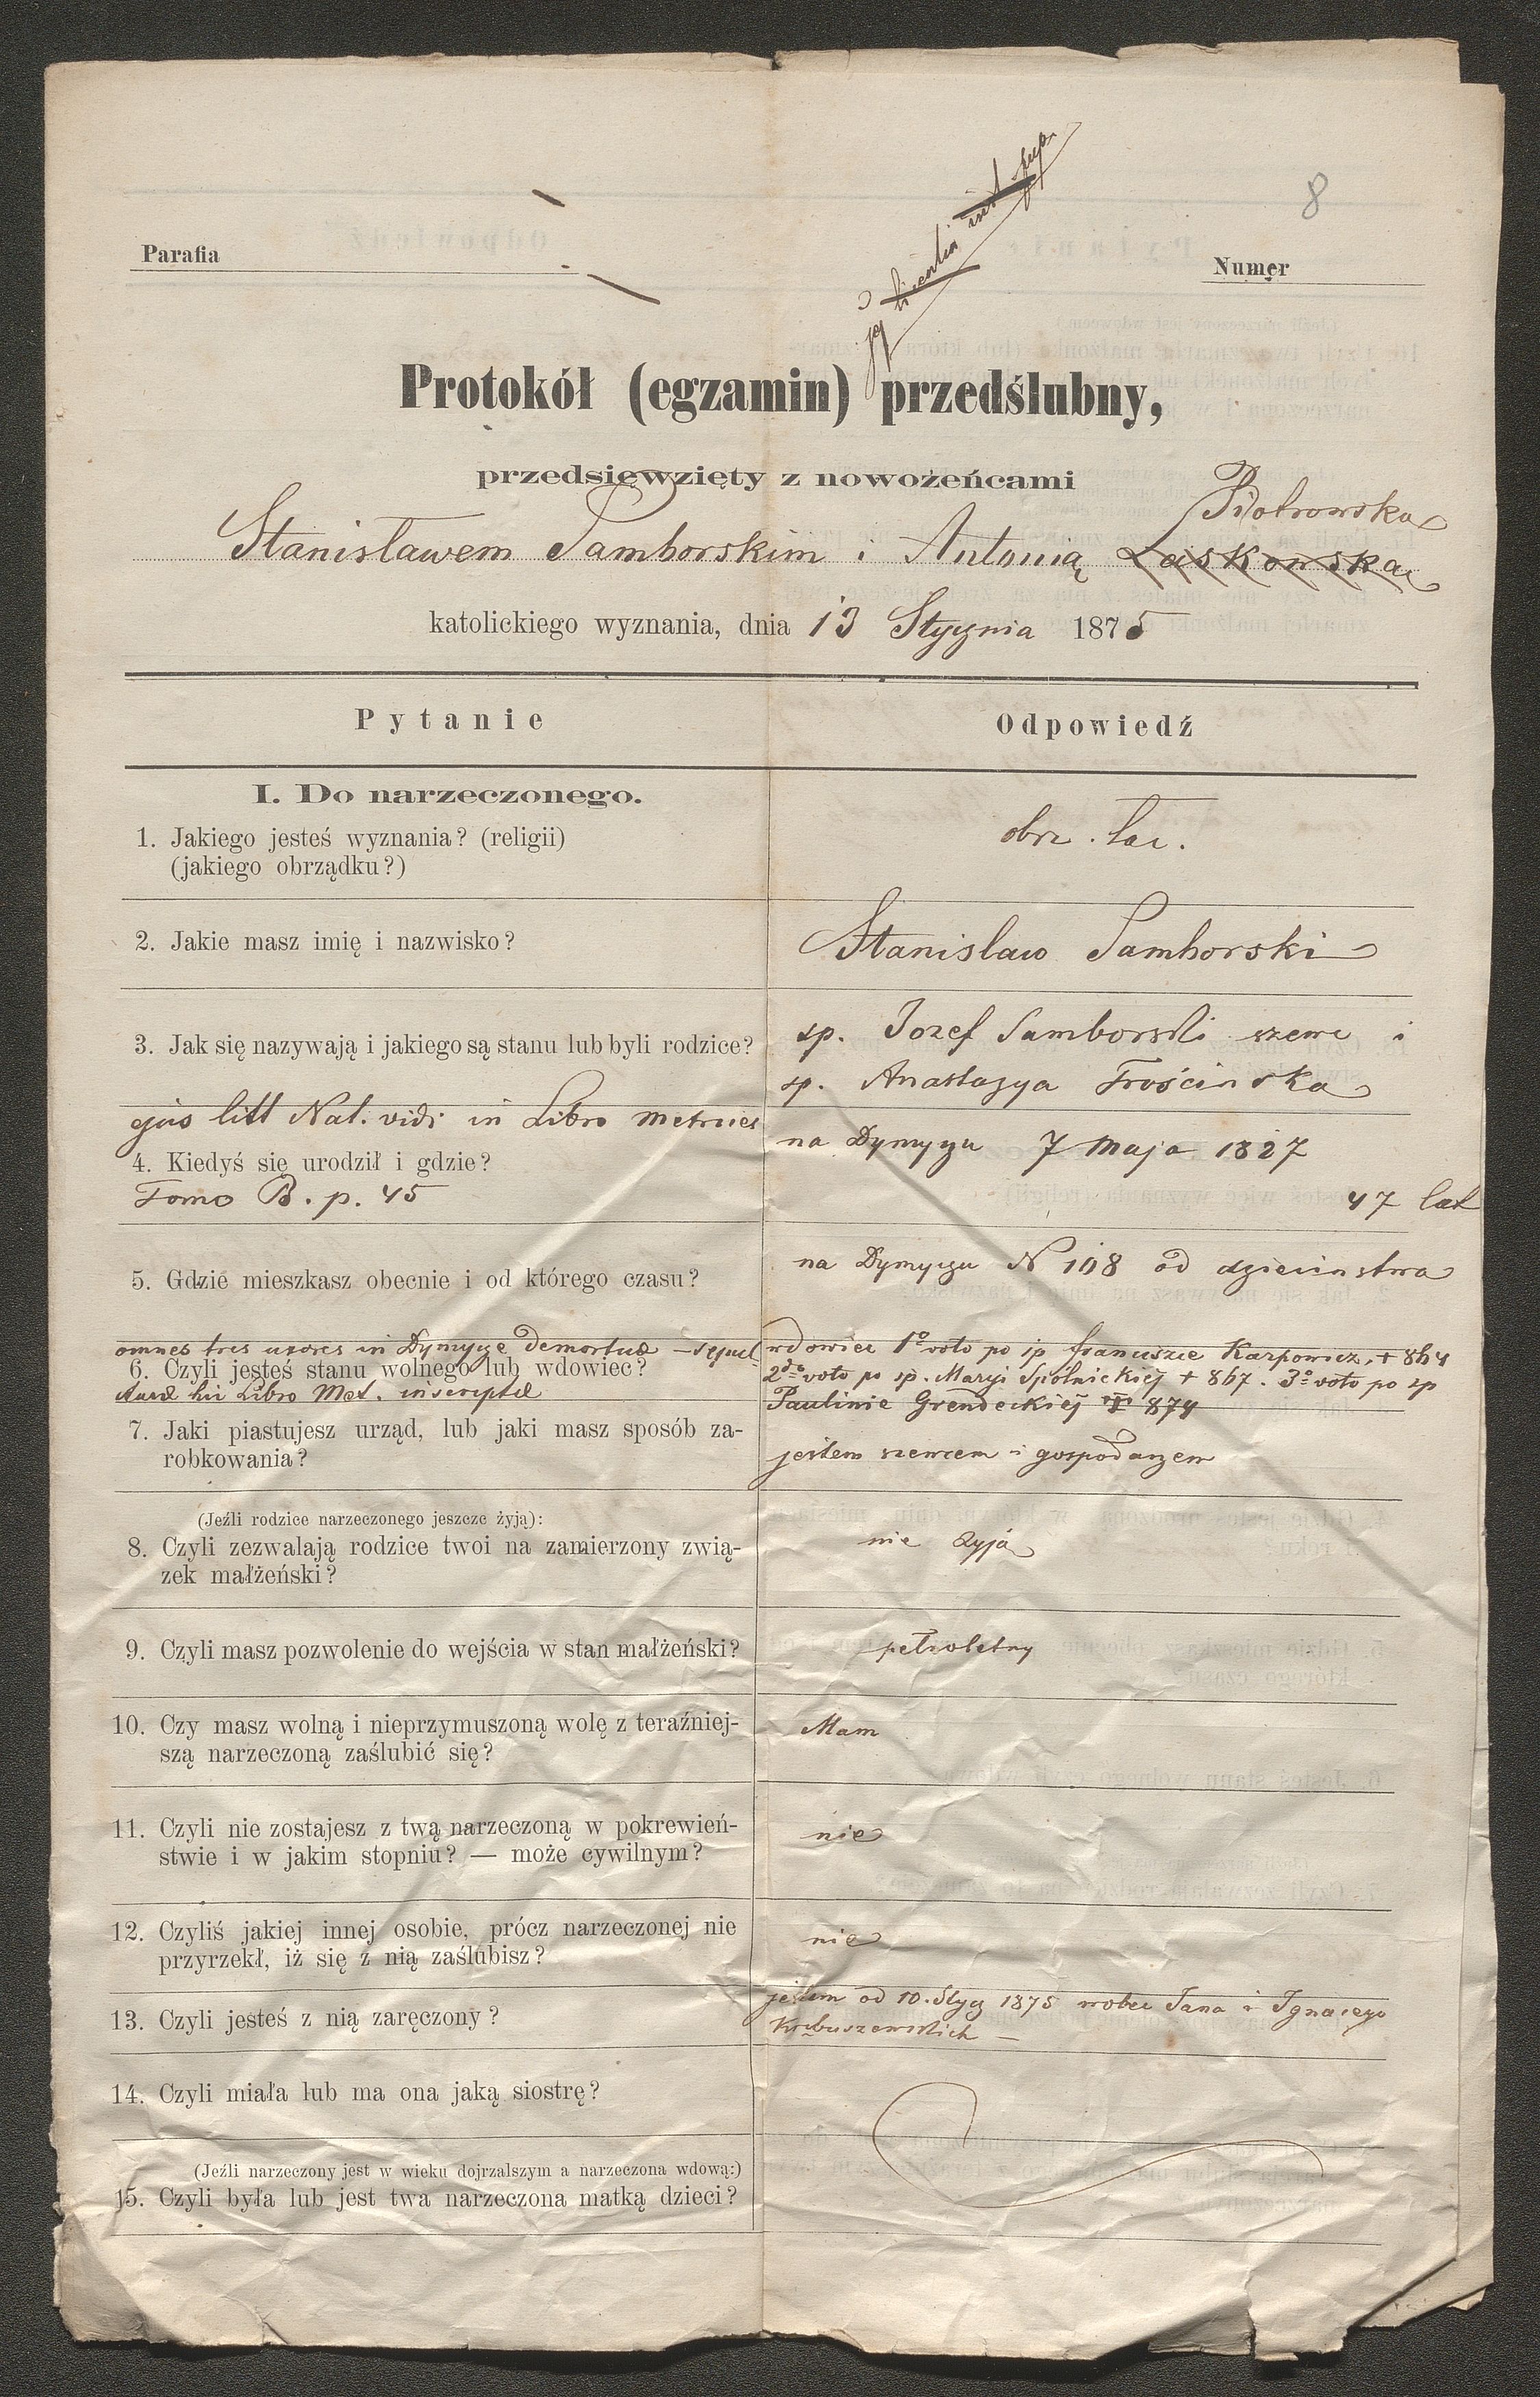 8
Parafia
Numer
licentia
Protokół (egzamin) przedślubny,
przedsięwzięty z nowożeńcami
Piotrowska
Stanisławem Samborskim i Antonią Laskowska
katolickiego wyznania, dnia 13 Stycznia 1875
Pytanie
Odpowiedź
I. Do narzeczonego.
1. Jakiego jesteś wyznania? (religii)
(jakiego obrządku?)
obrz. łac.
2. Jakie masz imię i nazwisko?
Stanislaw Samborski
3. Jak się nazywają i jakiego są stanu lub byli rodzice?
sp. Jozef Samborski szewc i
sp. Anastazya Trościnska
ejus litt Nat. vidi in Libro metrices
4. Kiedyś się urodził i gdzie?
Tomo B. p. 45
na Dymyczu 7 Maja 1827
47 lat
5. Gdzie mieszkasz obecnie i od którego czasu?
na Dymyczu N 108 od dziecinstwa
omnes tres uxores in Dymycze demortuae
6. Czyli jesteś stanu wolnego lub wdowiec?
hic Libro Met. inscriptae
wdowiec 1º voto po sp Franciszce Karpowicz, + 864
2do voto po sp. Maryi Spólnickiej + 867. 3º voto po sp
Paulinie Grendeckiej + 874
7. Jaki piastujesz urząd, lub jaki masz sposób za-
robkowania?
jestem szewcem i gospodarzem
(Jeźli rodzice narzeczonego jeszcze żyją):
8. Czyli zezwalają rodzice twoi na zamierzony zwią-
zek małżeński?
nie żyją
9. Czyli masz pozwolenie do wejścia w stan małżeński?
pełnoletny
10. Czy masz wolną i nieprzymuszoną wolę z teraźniej-
szą narzeczoną zaślubić się?
Mam
11. Czyli nie zostajesz z twą narzeczoną w pokrewień-
stwie i w jakim stopniu? — może cywilnym?
nie
12. Czyliś jakiej innej osobie, prócz narzeczonej nie
przyrzekł, iż się z nią zaślubisz?
nie
13. Czyli jesteś z nią zaręczony?
jestem od 10. Stycz 1875 wobec Jana i Ignacego
14. Czyli miała lub ma ona jaką siostrę?
(Jeźli narzeczony jest w wieku dojrzalszym a narzeczona wdową:)
15. Czyli była lub jest twa narzeczona matką dzieci?